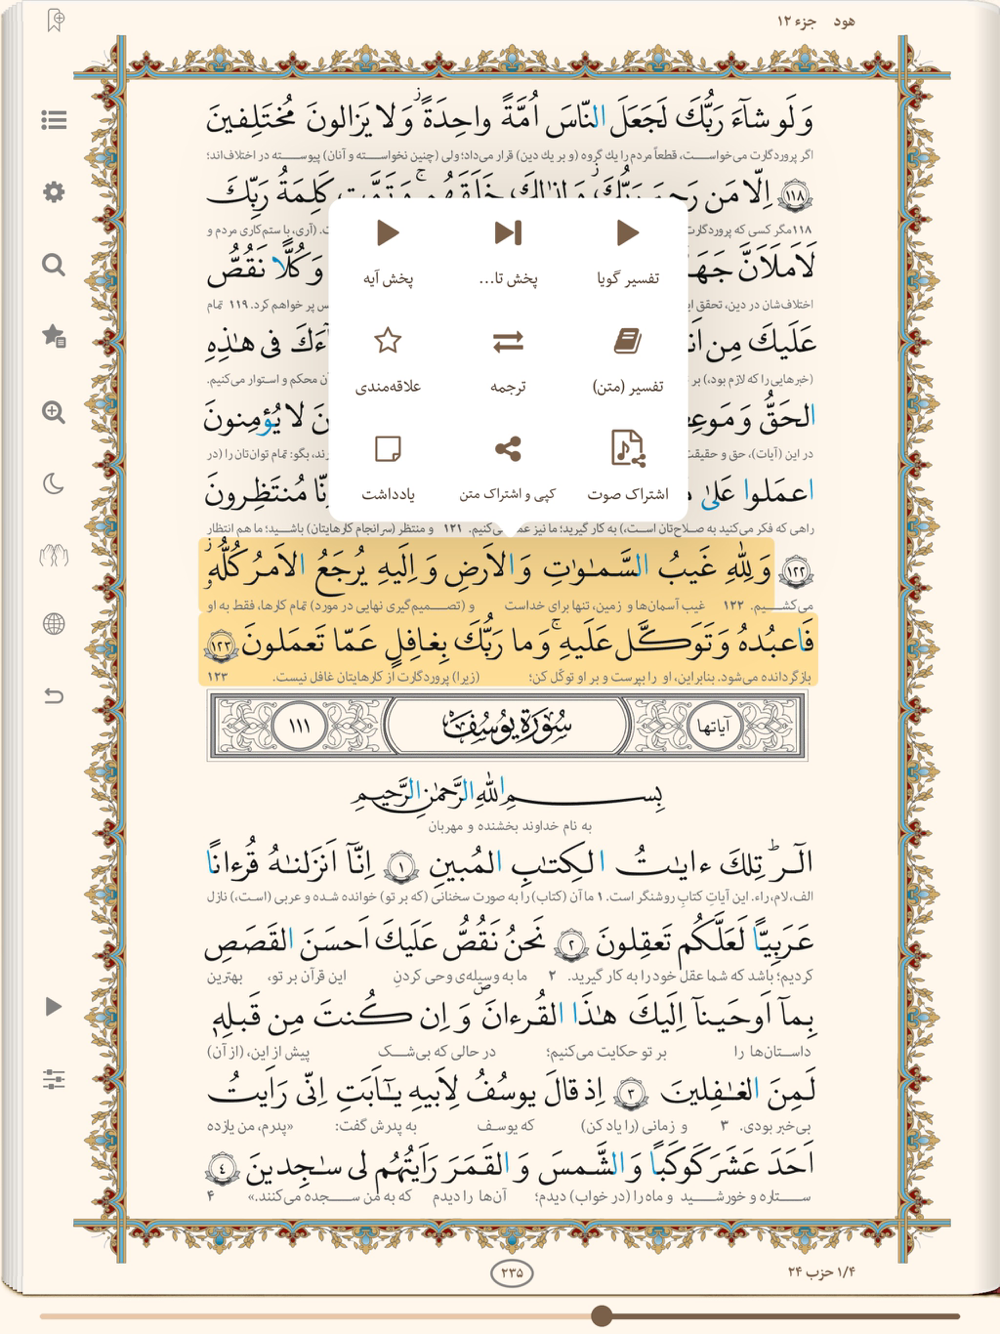 هود جزء ۱۲
وَلَو شآءَ رَبُّكَ لَجَعَلَ النّاسَ اُمَّةً واحِدَةً ۖ وَلا یَزالونَ مُختَلِفینَ
اگر پروردگارت می‌خواست، قطعاً مردم را یك گروه (و بر یك دین) قرار می‌داد؛ ولی (چنین نخواسته و آنان) پیوسته در اختلاف‌اند؛
﴿۱۱۸﴾ اِلّا مَن رَحِمَ رَبُّكَ ۚ وَ لِذٰلِكَ خَلَقَهُم ۗ وَ تَمَّت كَلِمَةُ رَبِّكَ
۱۱۸ مگر کسی که پروردگارت ت. (آری، با ستم‌کاری مردم و
لَاَملَاَنَّ جَهَ وَ كُلًّا نَقُصُّ
اختلاف‌شان در دین، تحقق س پر خواهم کرد. ۱۱۹ تمام
عَلَیكَ مِن اَن آءَكَ فی هٰذِهِ
(خبرهایی را که لازم بود،) بر ن محکم و استوار می‌کنیم.
الحَقُّ وَ مَوعِ نَ لا یُؤمِنونَ
در این (آیات)، حق و حقیقت رند، بگو: تمام توان‌تان را (در
اعمَلوا عَلىٰ نّا مُنتَظِرونَ
راهی که فکر می‌کنید به صلاح‌تان است،) به کار گیرید؛ ما نیز عمل می‌کنیم. ۱۲۱ و منتظر (سرانجام کارهایتان) باشید؛ ما هم انتظار
تفسیر گویا
پخش تا...
پخش آیه
تفسیر (متن)
ترجمه
علاقه‌مندی
اشتراک صوت
کپی و اشتراک متن
یادداشت
﴿۱۲۲﴾ وَ لِلّٰهِ غَیبُ السَّمـٰوٰتِ وَ الاَرضِ وَ اِلَیهِ یُرجَعُ الاَمرُ كُلُّهُ
می‌کشیم. ۱۲۲ غیب آسمان‌ها و زمین، تنها برای خداست و (تصمیم‌گیری نهایی در مورد) تمام کارها، فقط به او
فَاعبُدهُ وَ تَوَكَّل عَلَیهِ ۚ وَ ما رَبُّكَ بِغافِلٍ عَمّا تَعمَلونَ ﴿۱۲۳﴾
بازگردانده می‌شود. بنابراین، او را بپرست و بر او توکّل کن؛ (زیرا) پروردگارت از کارهایتان غافل نیست. ۱۲۳
آیاتها سُورَةُ یُوسُفَ ۱۱۱
بِسمِ اللّٰهِ الرَّحمٰنِ الرَّحیمِ
به نام خداوند بخشنده و مهربان
الٓرٰ ۚ تِلكَ ءایـٰتُ الكِتٰبِ المُبینِ ﴿۱﴾ اِنّآ اَنزَلنـٰهُ قُرءانًا
الف، لام، راء. این آیاتِ کتابِ روشنگر است. ۱ ما آن (کتاب) را به صورت سخنانی (که بر تو) خوانده شده و عربی (است،) نازل
عَرَبِیًّا لَعَلَّكُم تَعقِلونَ ﴿۲﴾ نَحنُ نَقُصُّ عَلَیكَ اَحسَنَ القَصَصِ
کردیم؛ باشد که شما عقل خود را به کار گیرید. ۲ ما به وسیله‌ی وحی کردنِ این قرآن بر تو، بهترین
بِمآ اَوحَینآ اِلَیكَ هـٰذَا القُرءانَ وَ اِن كُنتَ مِن قَبلِهٖ
داستان‌ها را بر تو حکایت می‌کنیم؛ در حالی که بی‌شک پیش از این، (از آن)
لَمِنَ الغـٰفِلینَ ﴿۳﴾ اِذ قالَ یوسُفُ لِاَبیهِ یـٰٓاَبَتِ اِنّی رَاَیتُ
بی‌خبر بودی. ۳ و زمانی (را یاد کن) که یوسف به پدرش گفت: «پدرم، من یازده
اَحَدَ عَشَرَ كَوكَبًا وَ الشَّمسَ وَ القَمَرَ رَاَیتُهُم لی سـٰجِدینَ ﴿۴﴾
ستاره و خورشید و ماه را (در خواب) دیدم؛ آن‌ها را دیدم که به من سجده می‌کنند.» ۴
۲۳۵
۱/۴ حزب ۲۴